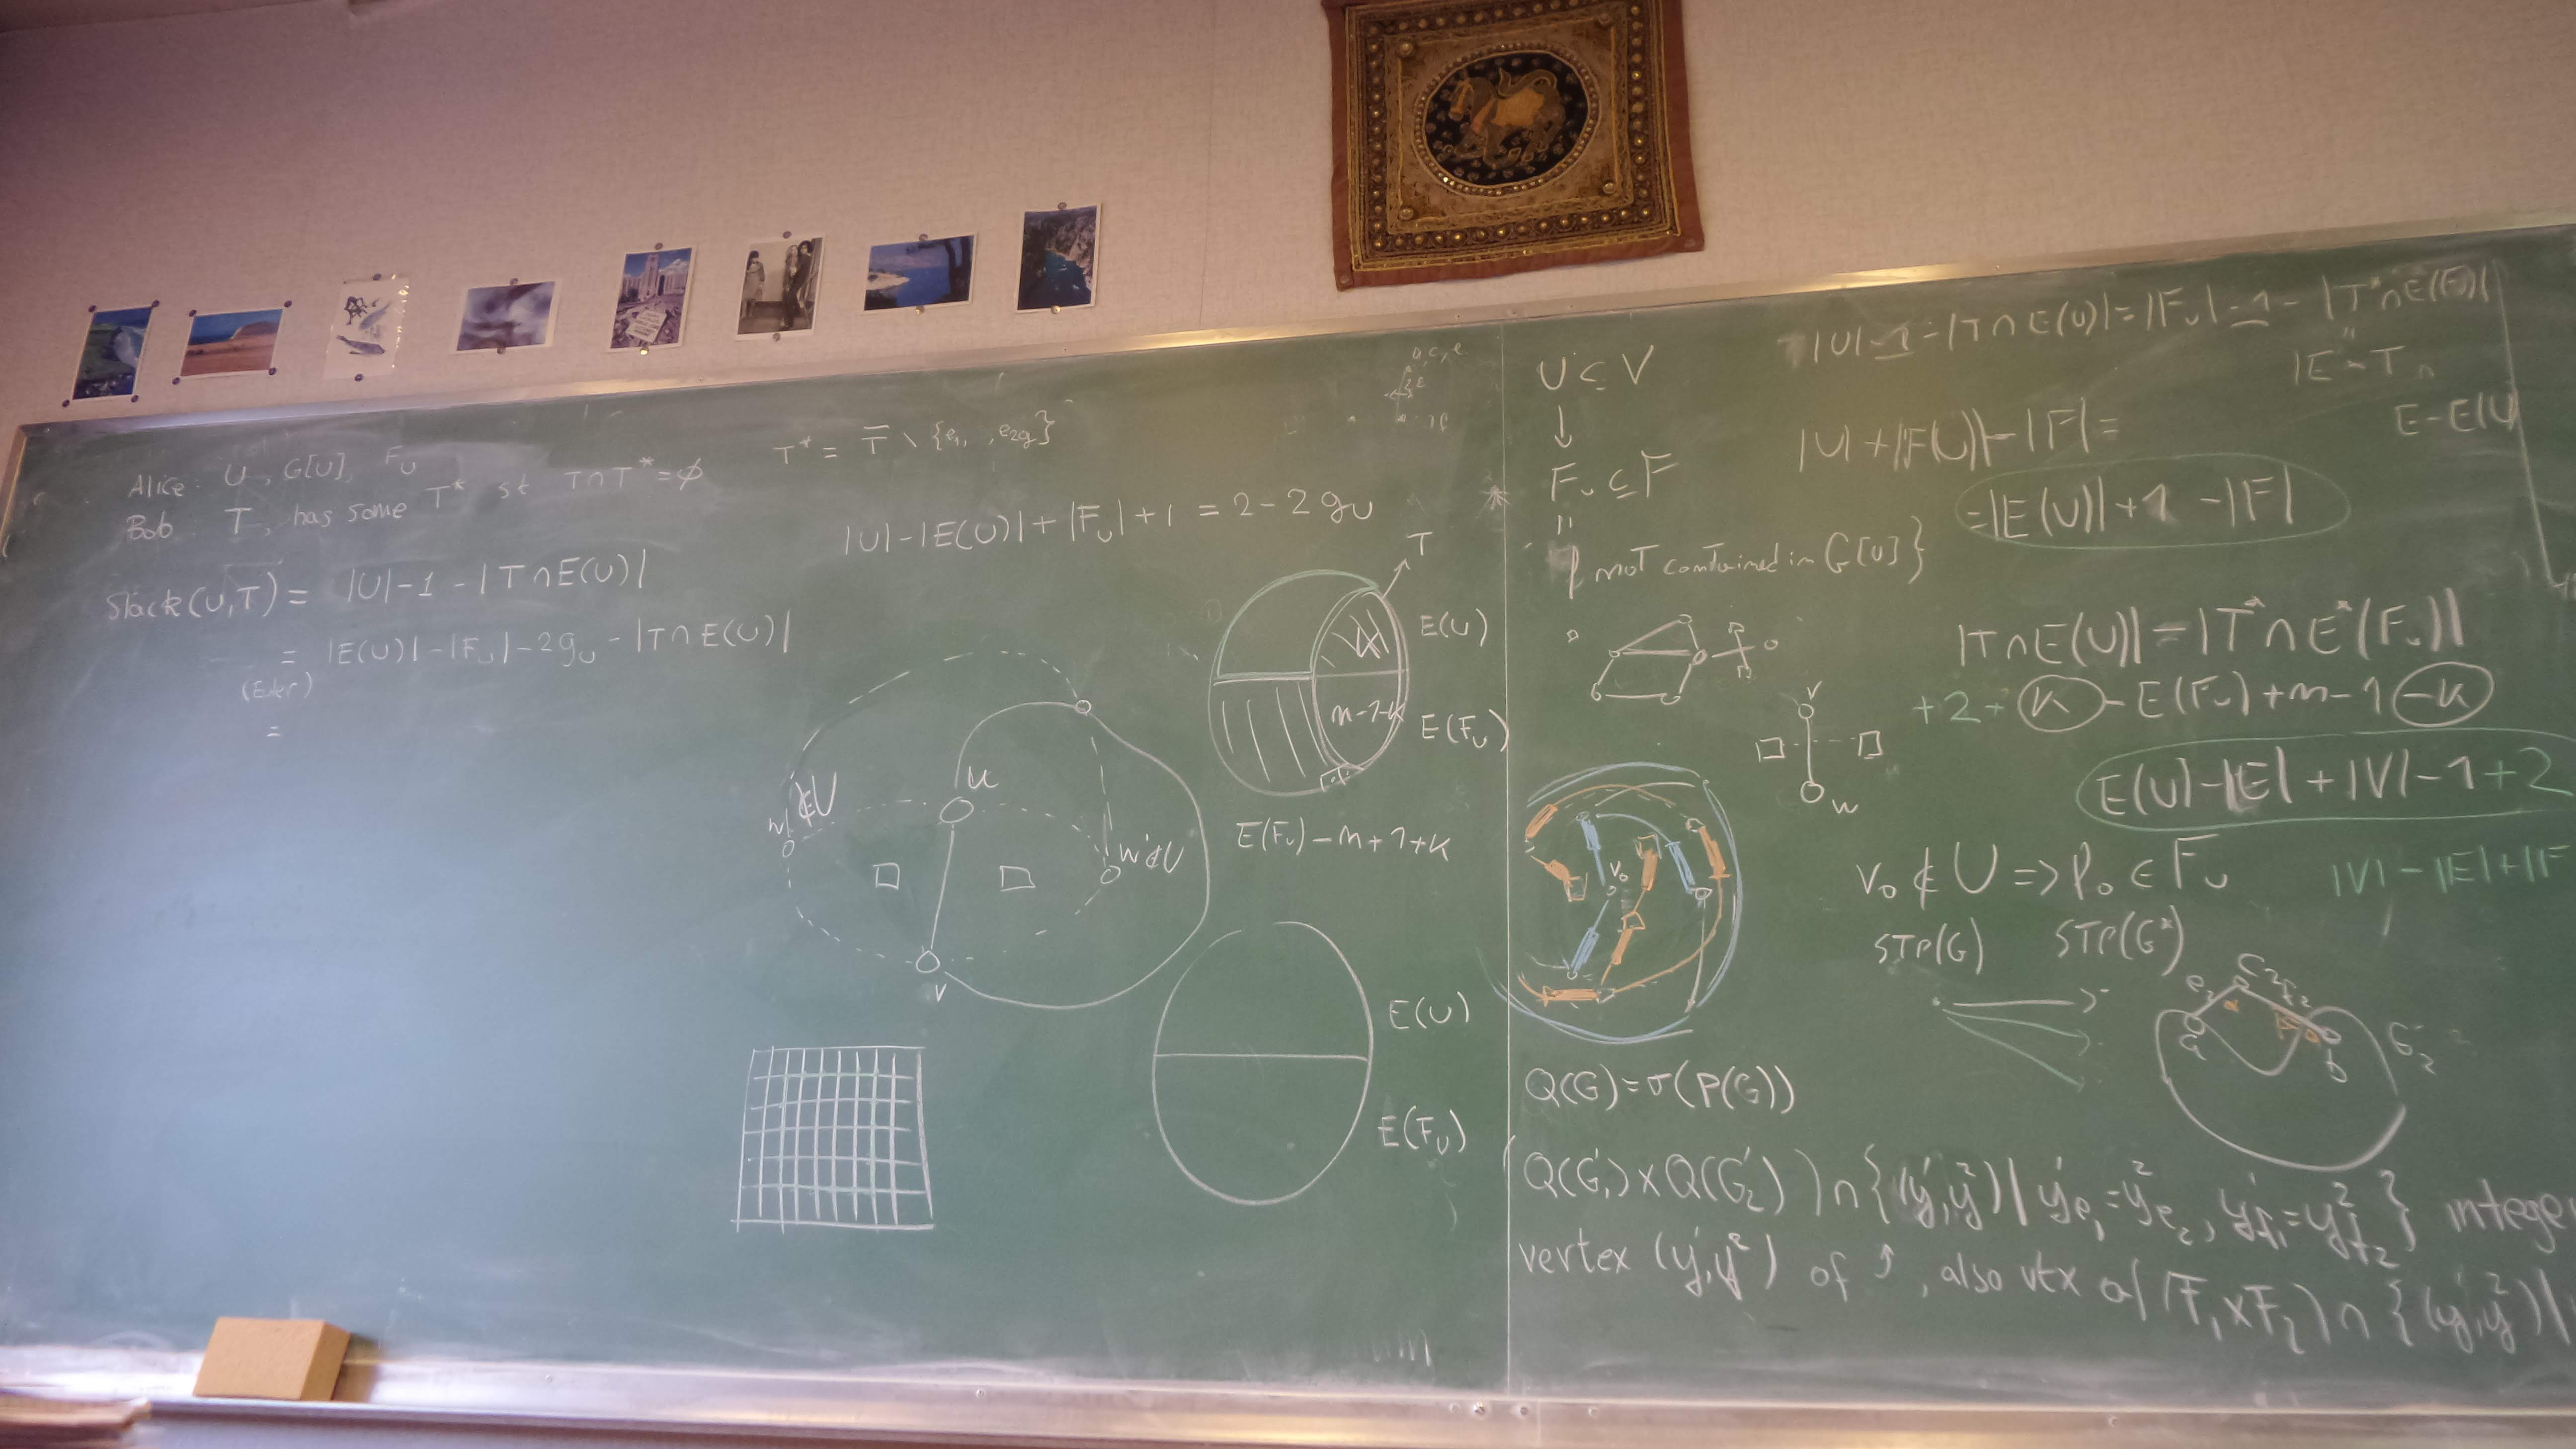 Alice: U, G[U], F_U
Bob: T, has some T* st T∩T* = ∅
T* = T̅ \ {e₁, , e_2g}
Slack(U,T) = |U|-1-|T∩E(U)|
= |E(U)|-|F_U|-2g_U-|T∩E(U)|
(Euler)
=
|U|-|E(U)|+|F_U|+1 = 2-2g_U
a, c, e
T
E(U)
n-1-k
E(F_U)
E(F_U)-n+1+k
u
w ∉U
w'∉U
v
E(U)
E(F_U)
U ⊆ V
↓
F_U ⊆ F
"
f not contained in G[U]}
|U|-1-|T∩E(U)|=|F_U|-1-|T*∩E(F_U)|
"
|E-T∩
E-E(U)
|U|+|F(U)|-|F|=
=|E(U)|+1-|F|
|T∩E(U)|-|T*∩E*(F_U)|
+2+k-E(F_U)+n-1-k
E(U)-|E|+|V|-1+2
v
w
v₀
v₀ ∉ U => p₀ ∈ F_U
|V|-|E|+|F
STP(G) STP(G*)
e₂ c₂ f₂
a b G₂
Q(G)=σ(P(G))
(Q(G'₁)×Q(G'₂))∩{(y¹,y²)| y¹_e₁=y²_e₂, y¹_f₁=y²_f₂} intege
vertex (y¹,y²) of ↑, also vtx of (F₁×F₂)∩{(y¹,y²)|